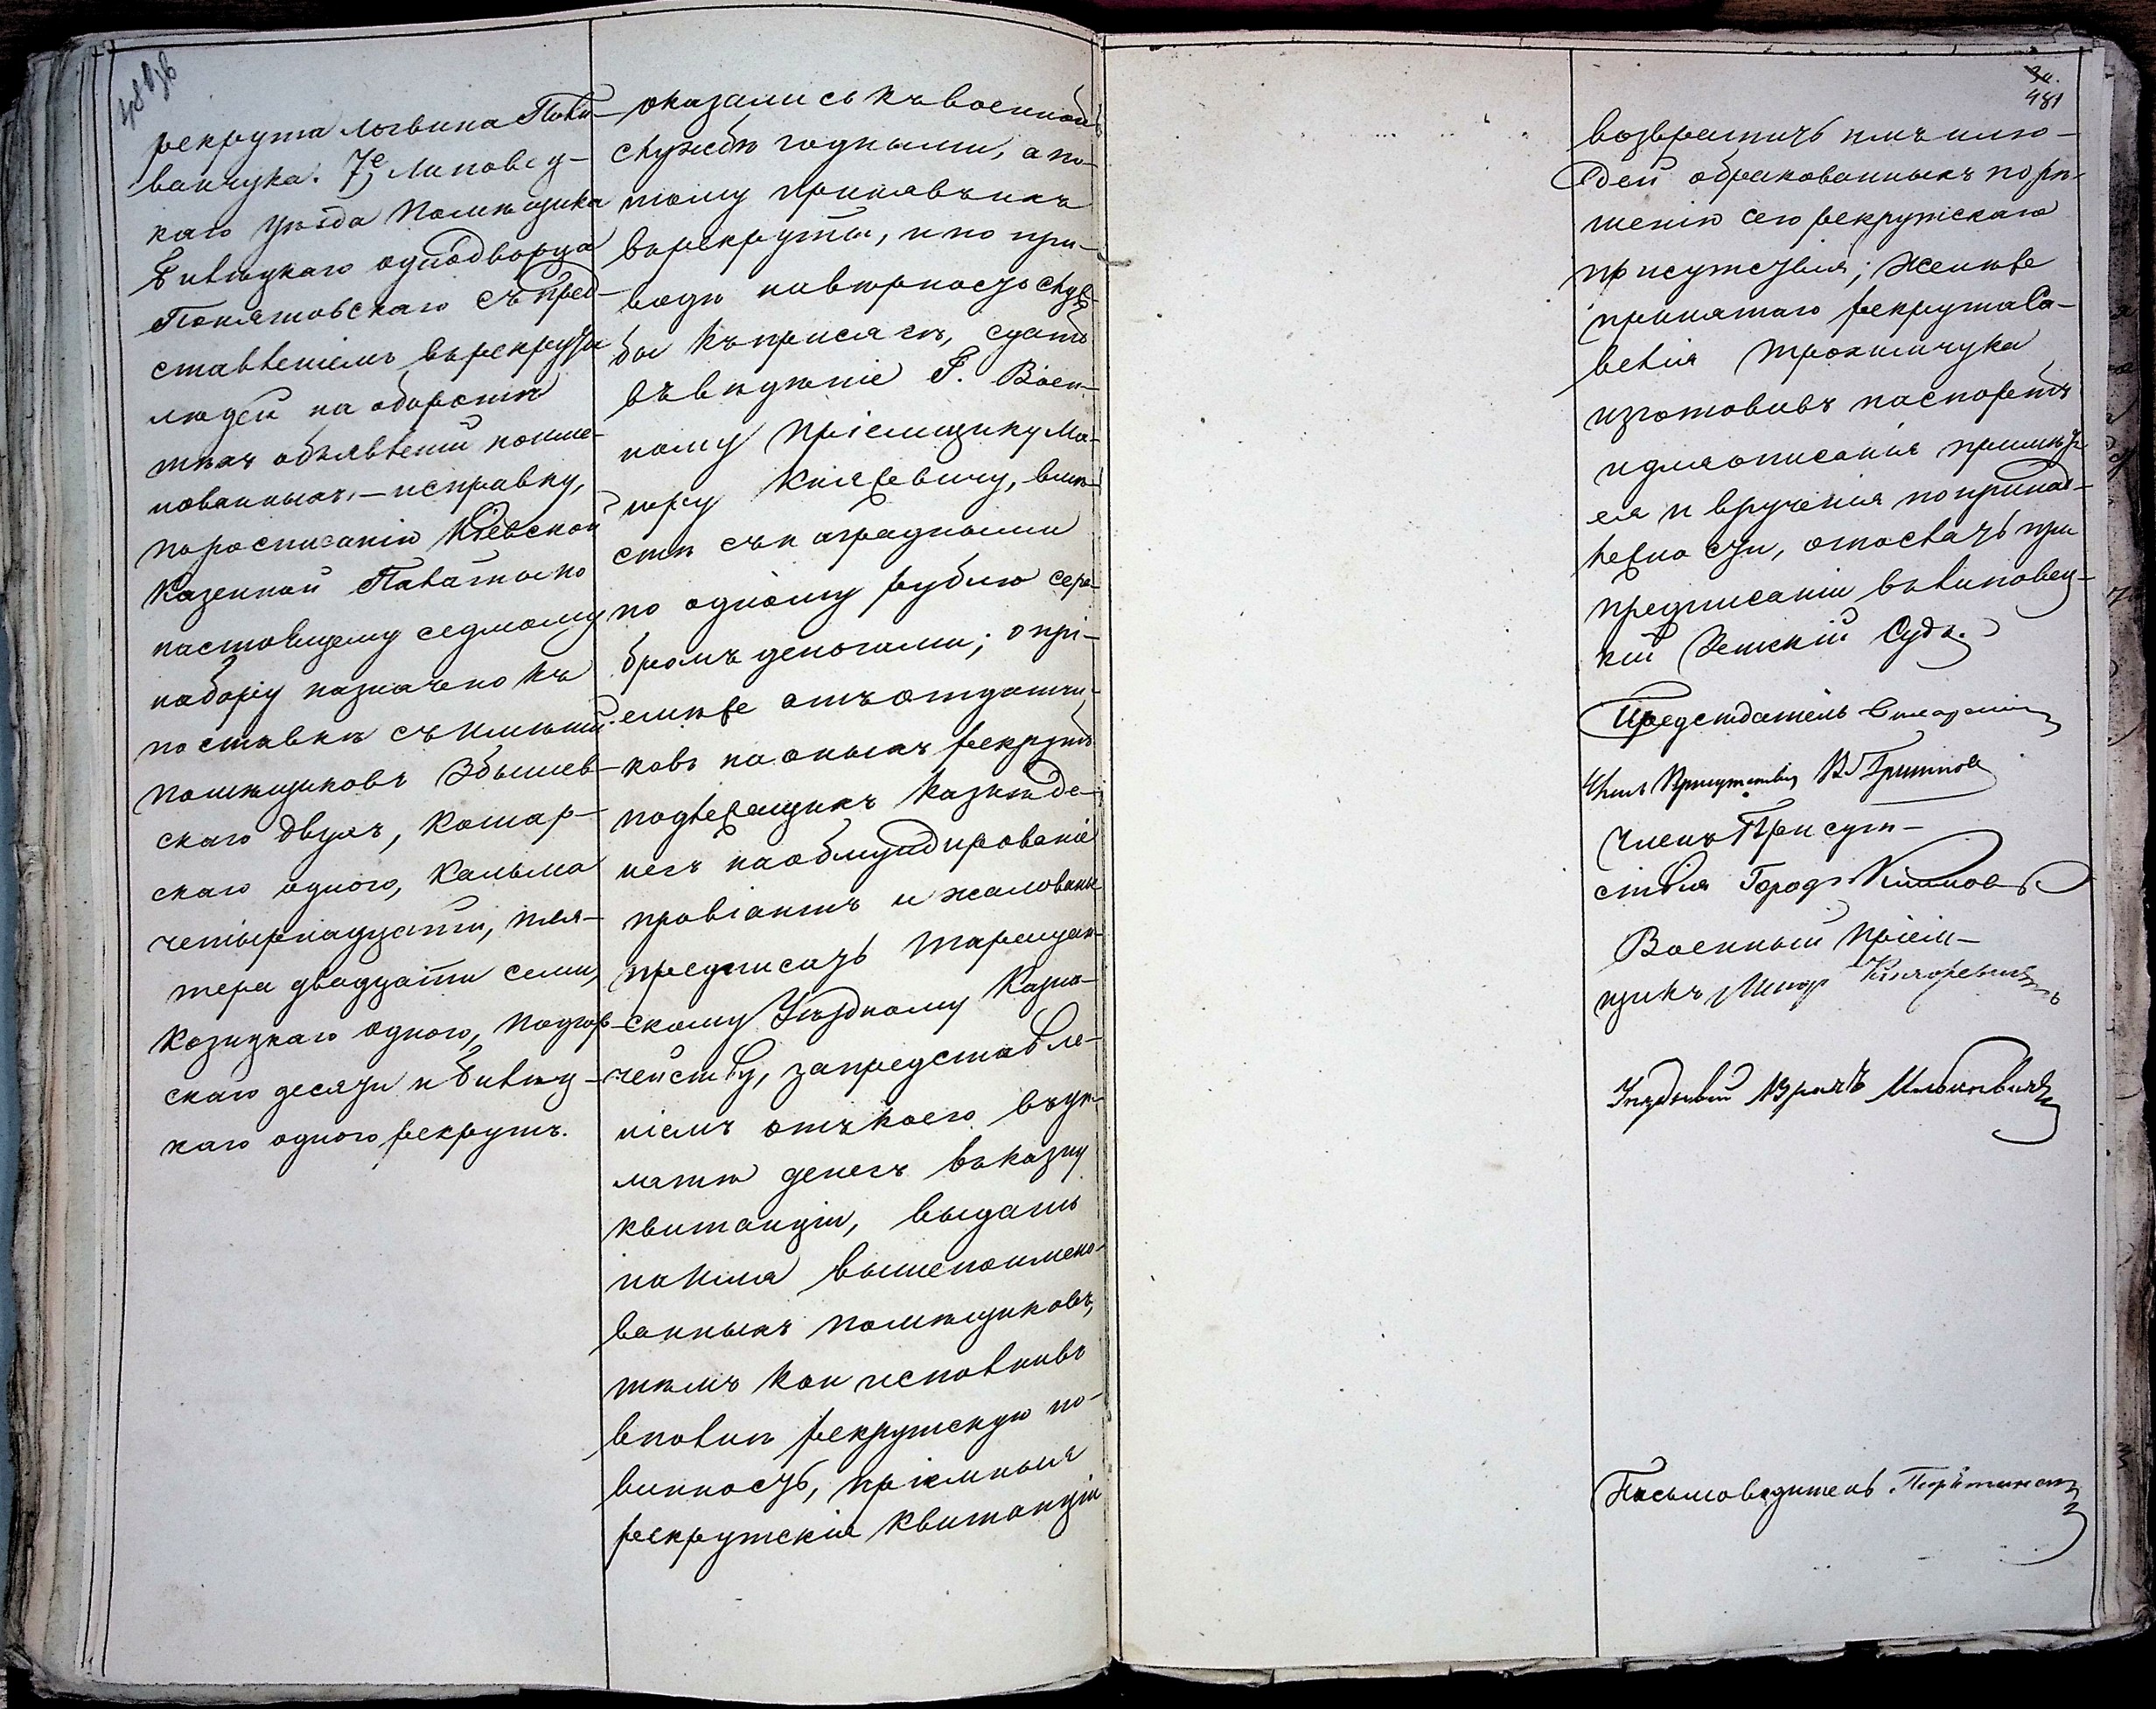 рекрута Логвина Поки-
ванчука. 7е, Липовец-
каго уѣзда Помѣщика
Билецкаго однодворца
Понятовскаго съ пред-
ставленіемъ въ рекруты
людей на оборотѣ
тѣхъ объявленій поиме-
нованныхъ, – исправку,
по росписанію Кіевской
Казенной Палаты по
настоящему седмому
набору назначено къ
поставкѣ съ имѣній
помѣщиковъ Збышев-
скаго двухъ, Комар-
скаго одного, Кальма
четырнадцати, Пля-
тера двадцати семи,
Козицкаго одного, Подгор-
скаго десяти и Билец-
каго одного рекрутъ.
оказались къ военной
службѣ годными, а по-
тому принявъ ихъ
въ рекруты, и по при-
водѣ на вѣрность служ-
бы къ присягѣ, сдать
въ вѣденіе Г. Воен-
ному Пріемщику Ма-
іору Княжевичу, вмѣ-
стѣ съ наградными
по одному рублю сере-
бромъ деньгами; о прі-
емѣже отъ отдатчи-
ковъ на оныхъ рекрутъ
подлежащихъ казнѣ де-
негъ на обмундированіе
провіантъ и жалованье
предписать Таращан-
скому Уѣздному Казна-
чейству, за представле-
ніемъ отъ коего въ уп-
латѣ денегъ въ казну
квитанціи, выдать
на имя вышепоимено-
ванныхъ помѣщиковъ,
тѣмъ кои исполнивъ
вполнѣ рекрутскую по-
винность, пріемныя
рекрутскія квитанціи
481
возвратить имъ и лю-
дей обракованныхъ по рѣ-
шенію сего рекрутскаго
присутствія; Женѣже
принятаго рекрута Са-
велія Трохимчука
изготовивъ паспортъ
и для описанія примѣтъ
ея и врученія по принад-
лежности, отослать при
предписаніи въ Липовец-
кій Земскій Судъ.
Председатель
Членъ Присутствія
Членъ Присут-
ствія Город.
Военный Пріем-
щикъ Маіор Княжевичъ
Уѣздный Врачъ
Письмоводитель